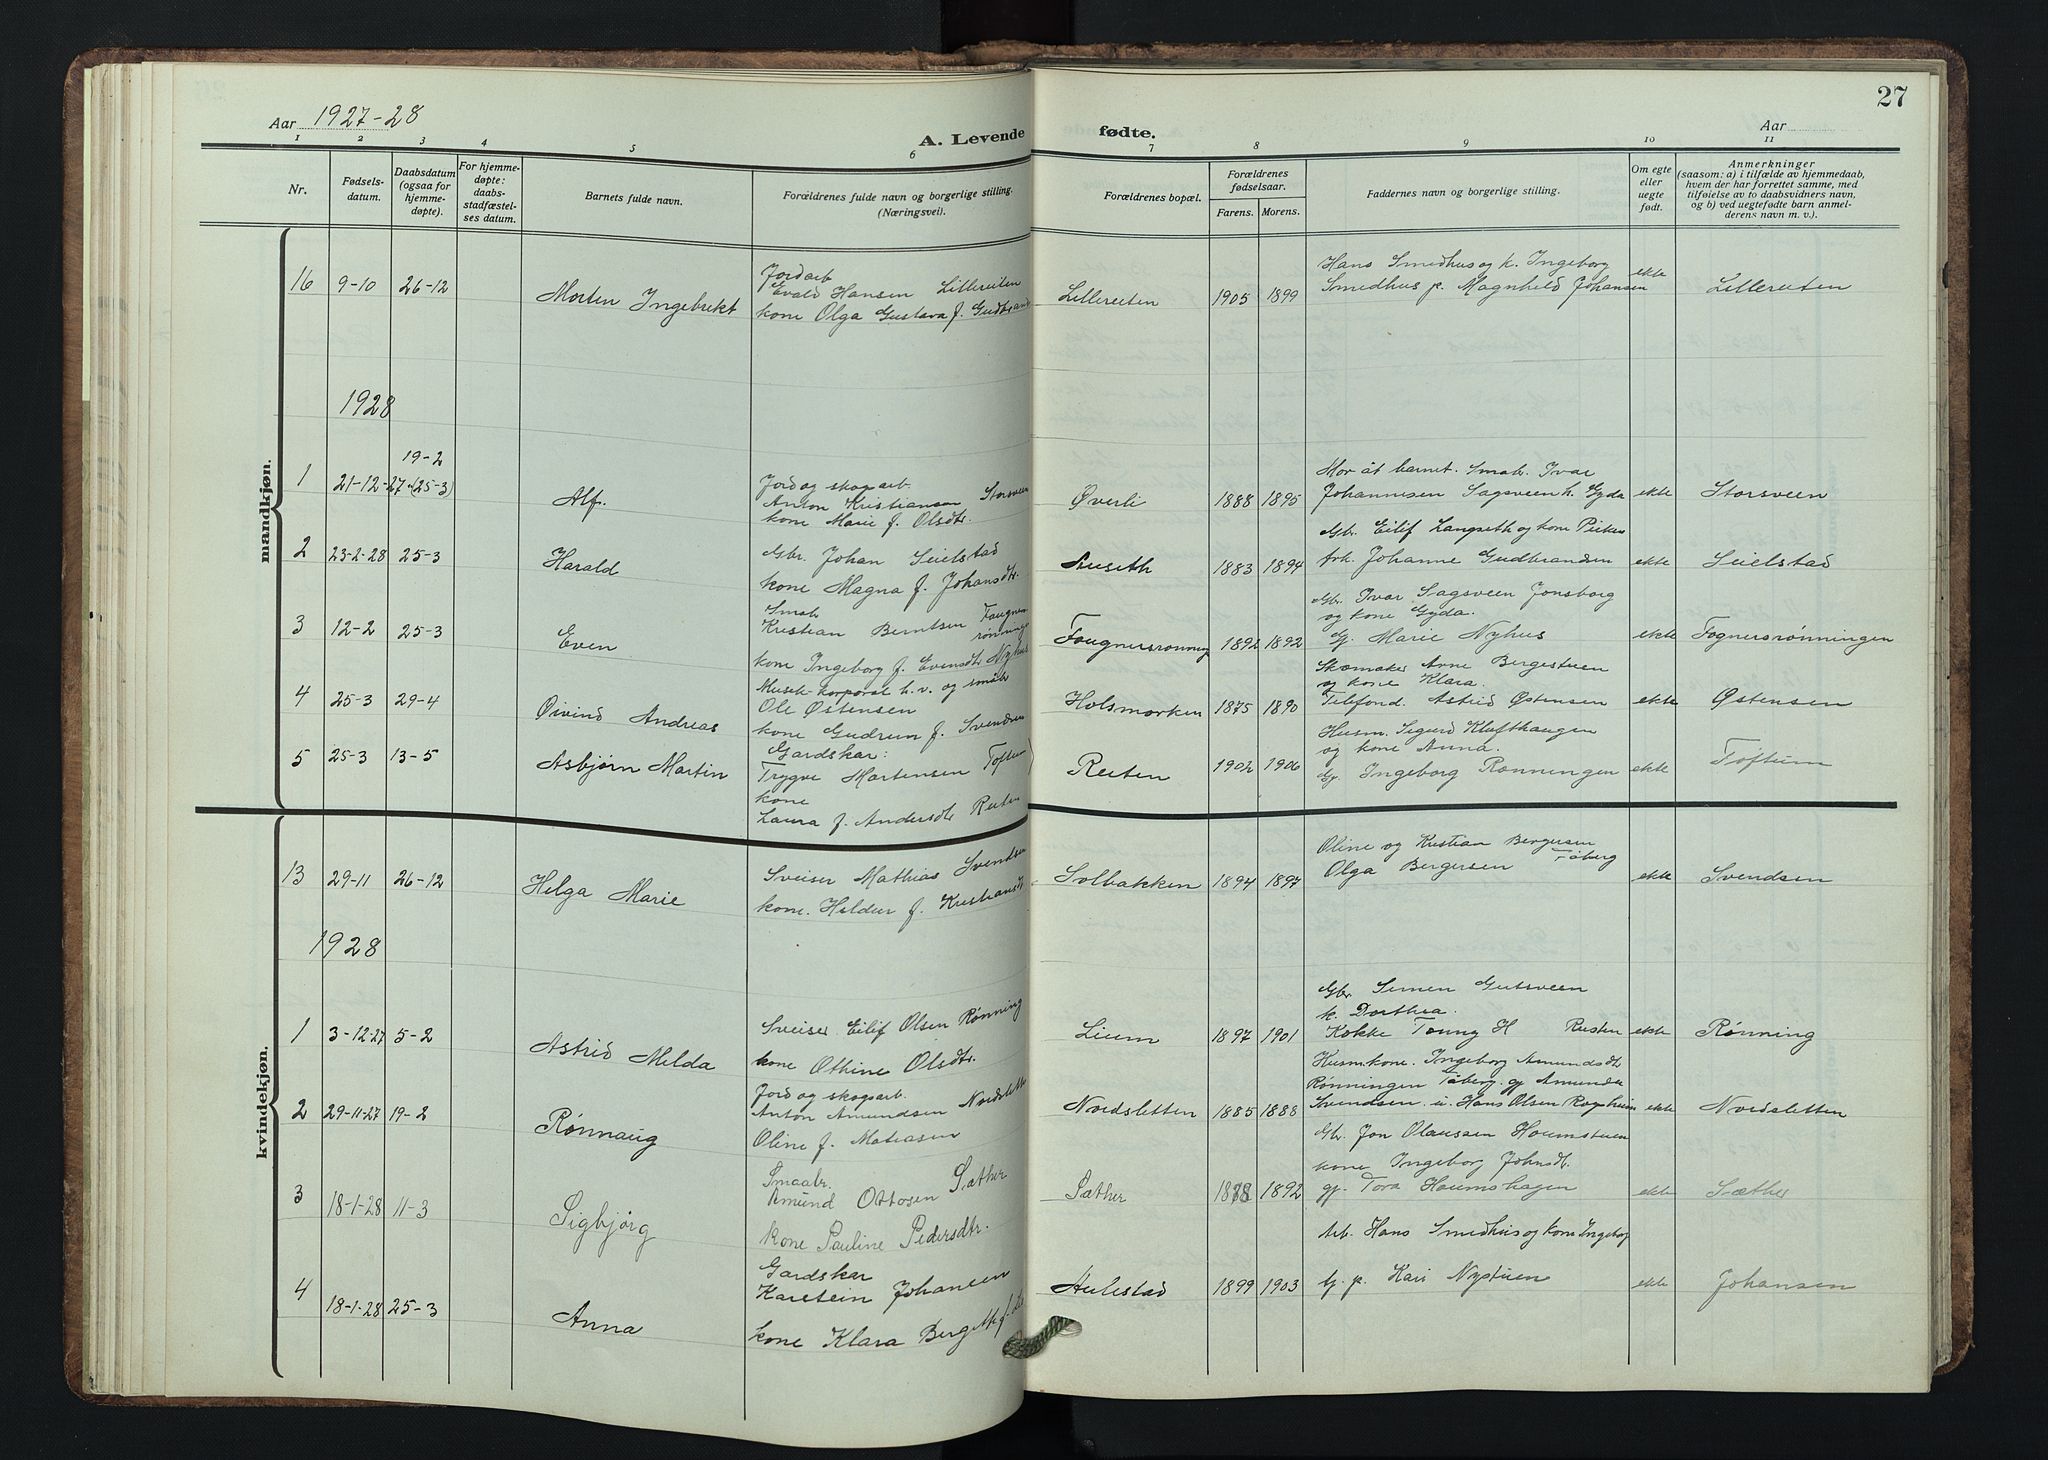 27
Aar 1927-28
A. Levende fødte.
Aar
1 2 3 4 5 6 7 8 9 10 11
Nr.
Fødsels-
datum.
Daabsdatum
(ogsaa for
hjemme-
døpte).
For hjemme-
døpte:
daabs-
stadfæstel-
ses datum.
Barnets fulde navn.
Forældrenes fulde navn og borgerlige stilling.
(Næringsvei).
Forældrenes bopæl.
Forældrenes
fødselsaar.
Farens. Morens.
Faddernes navn og borgerlige stilling.
Om egte
eller
uegte
født.
Anmerkninger
(saasom: a) i tilfælde av hjemmedaab,
hvem der har forrettet samme, med
tilføielse av to daabsvidners navn,
og b) ved uegtefødte barn anmel-
derens navn m. v.).
mandkjøn.
16 9-10 26-12 Morten Ingebrekt
Jordarb
Evald Hansen Lillereiten
kone Olga Gustava f. Gudbrands
Lillereiten 1905 1899
Hans Smedhus og k. Ingeborg
Smedhus p. Magnhild Johansen
ekte Lillereiten
1928
1 21-12-27 19-2 (25-3) Alf.
Jord og skogsarb.
Anton Kristiansen Storsveen
kone Marie f. Olsdtr.
Øverli 1888 1895
Mor åt barnet. Smab. Ivar
Johannesen Sagsveen h. Gyda
ekte Storsveen
2 23-2-28 25-3 Harald
Gbr. Johan Seielstad
kone Magna f. Johansdtr.
Auseth 1883 1894
Gbr. Eilif Langseth og kone
Arb. Johanne Gudbrandsen
ekte Seielstad
3 12-2 25-3 Even
Smab
Kristian Berntsen Fougner
rønninge
kone Ingeborg f. Evensdtr Nyhus
Fougnersrønning 1892 1892
Gbr. Ivar Sagsveen Jonsborg
og kone Gyda.
G. Marie Nyhus
ekte Fognersrønningen
4 25-3 29-4 Øivind Andreas
Musik-korporal h.v. og småb
Ole Østensen
kone Gudrun f. Svendsen
Holsmorken 1875 1890
Skomaker Arne Bergestuen
og kone Klara.
Telefond. Astrid Østensen
ekte Østensen
5 25-3 13-5 Asbjørn Martin
Gardskar:
Trygve Martensen Toftum
kone
Laura f. Andersdtr Reiten
Reiten 1902 1906
Husm. Sigurd Klufthaugen
og kone Anna.
Gj. Ingeborg Rønningen
ekte Toftum
kvindekjøn.
13 29-11 26-12 Helga Marie
Sveiser Mathias Svendsen
kone. Heldur f. Kristiansdt
Solbakken 1894 1897
Oline og Kristian Bergersen
Olga Bergersen Fåberg
ekte Svendsen
1928
1 3-12-27 5-2 Astrid Milda
Sveiser Eilif Olsen Rønning
kone Othine Olsdtr.
Lium 1897 1901
Gbr Simen Gutsveen
k. Dorthea.
Kokke Tonny H Rusten
ekte Rønning
2 29-11-27 19-2 Rønnaug
Jord og skogsarb.
Anton Amundsen Nordslette
Oline f. Matiasen
Nordsletten 1885 1888
Husm.kone. Ingeborg Amundsdt
Rønningen Fåberg. gj Amunda
Svendsen. u. Hans Olsen Rogsheim
ekte Nordsletten
3 18-1-28 11-3 Sigbjørg
Smaabr.
Amund Ottosen Sæther
kone Pauline Pedersdtr.
Sæther 1878 1892
Gbr. Jon Olaussen Houmstuen
kone Ingeborg Johnsdt.
gj. Tora Houmshagen
ekte Sæther
4 18-1-28 25-3 Anna
Gardskar
Karstein Johansen
kone Klara Bergith f.
Aulestad 1899 1903
Arb. Hans Smedhus og kone Ingeborg
G. p. Kari Nystuen
ekte Johansen